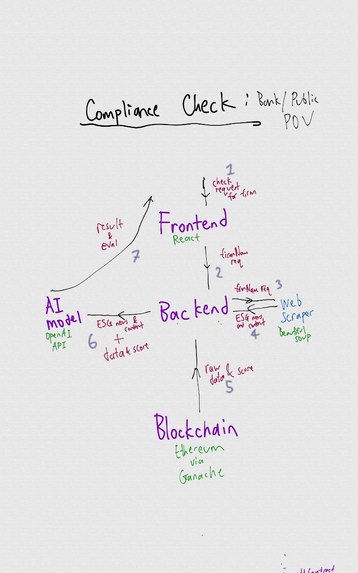 Compliance Check : Bank/Public
POV
1
check
request
for firm
Frontend
React
result
&
eval
7
2
firmNam
req
firmNam req 3
AI
model
OpenAI
API
6
ESG news &
content
+
data & score
Backend
ESG news
and content
4
Web
Scraper
Beautiful
soup
raw
data & score
5
Blockchain
Ethereum
via
Ganache